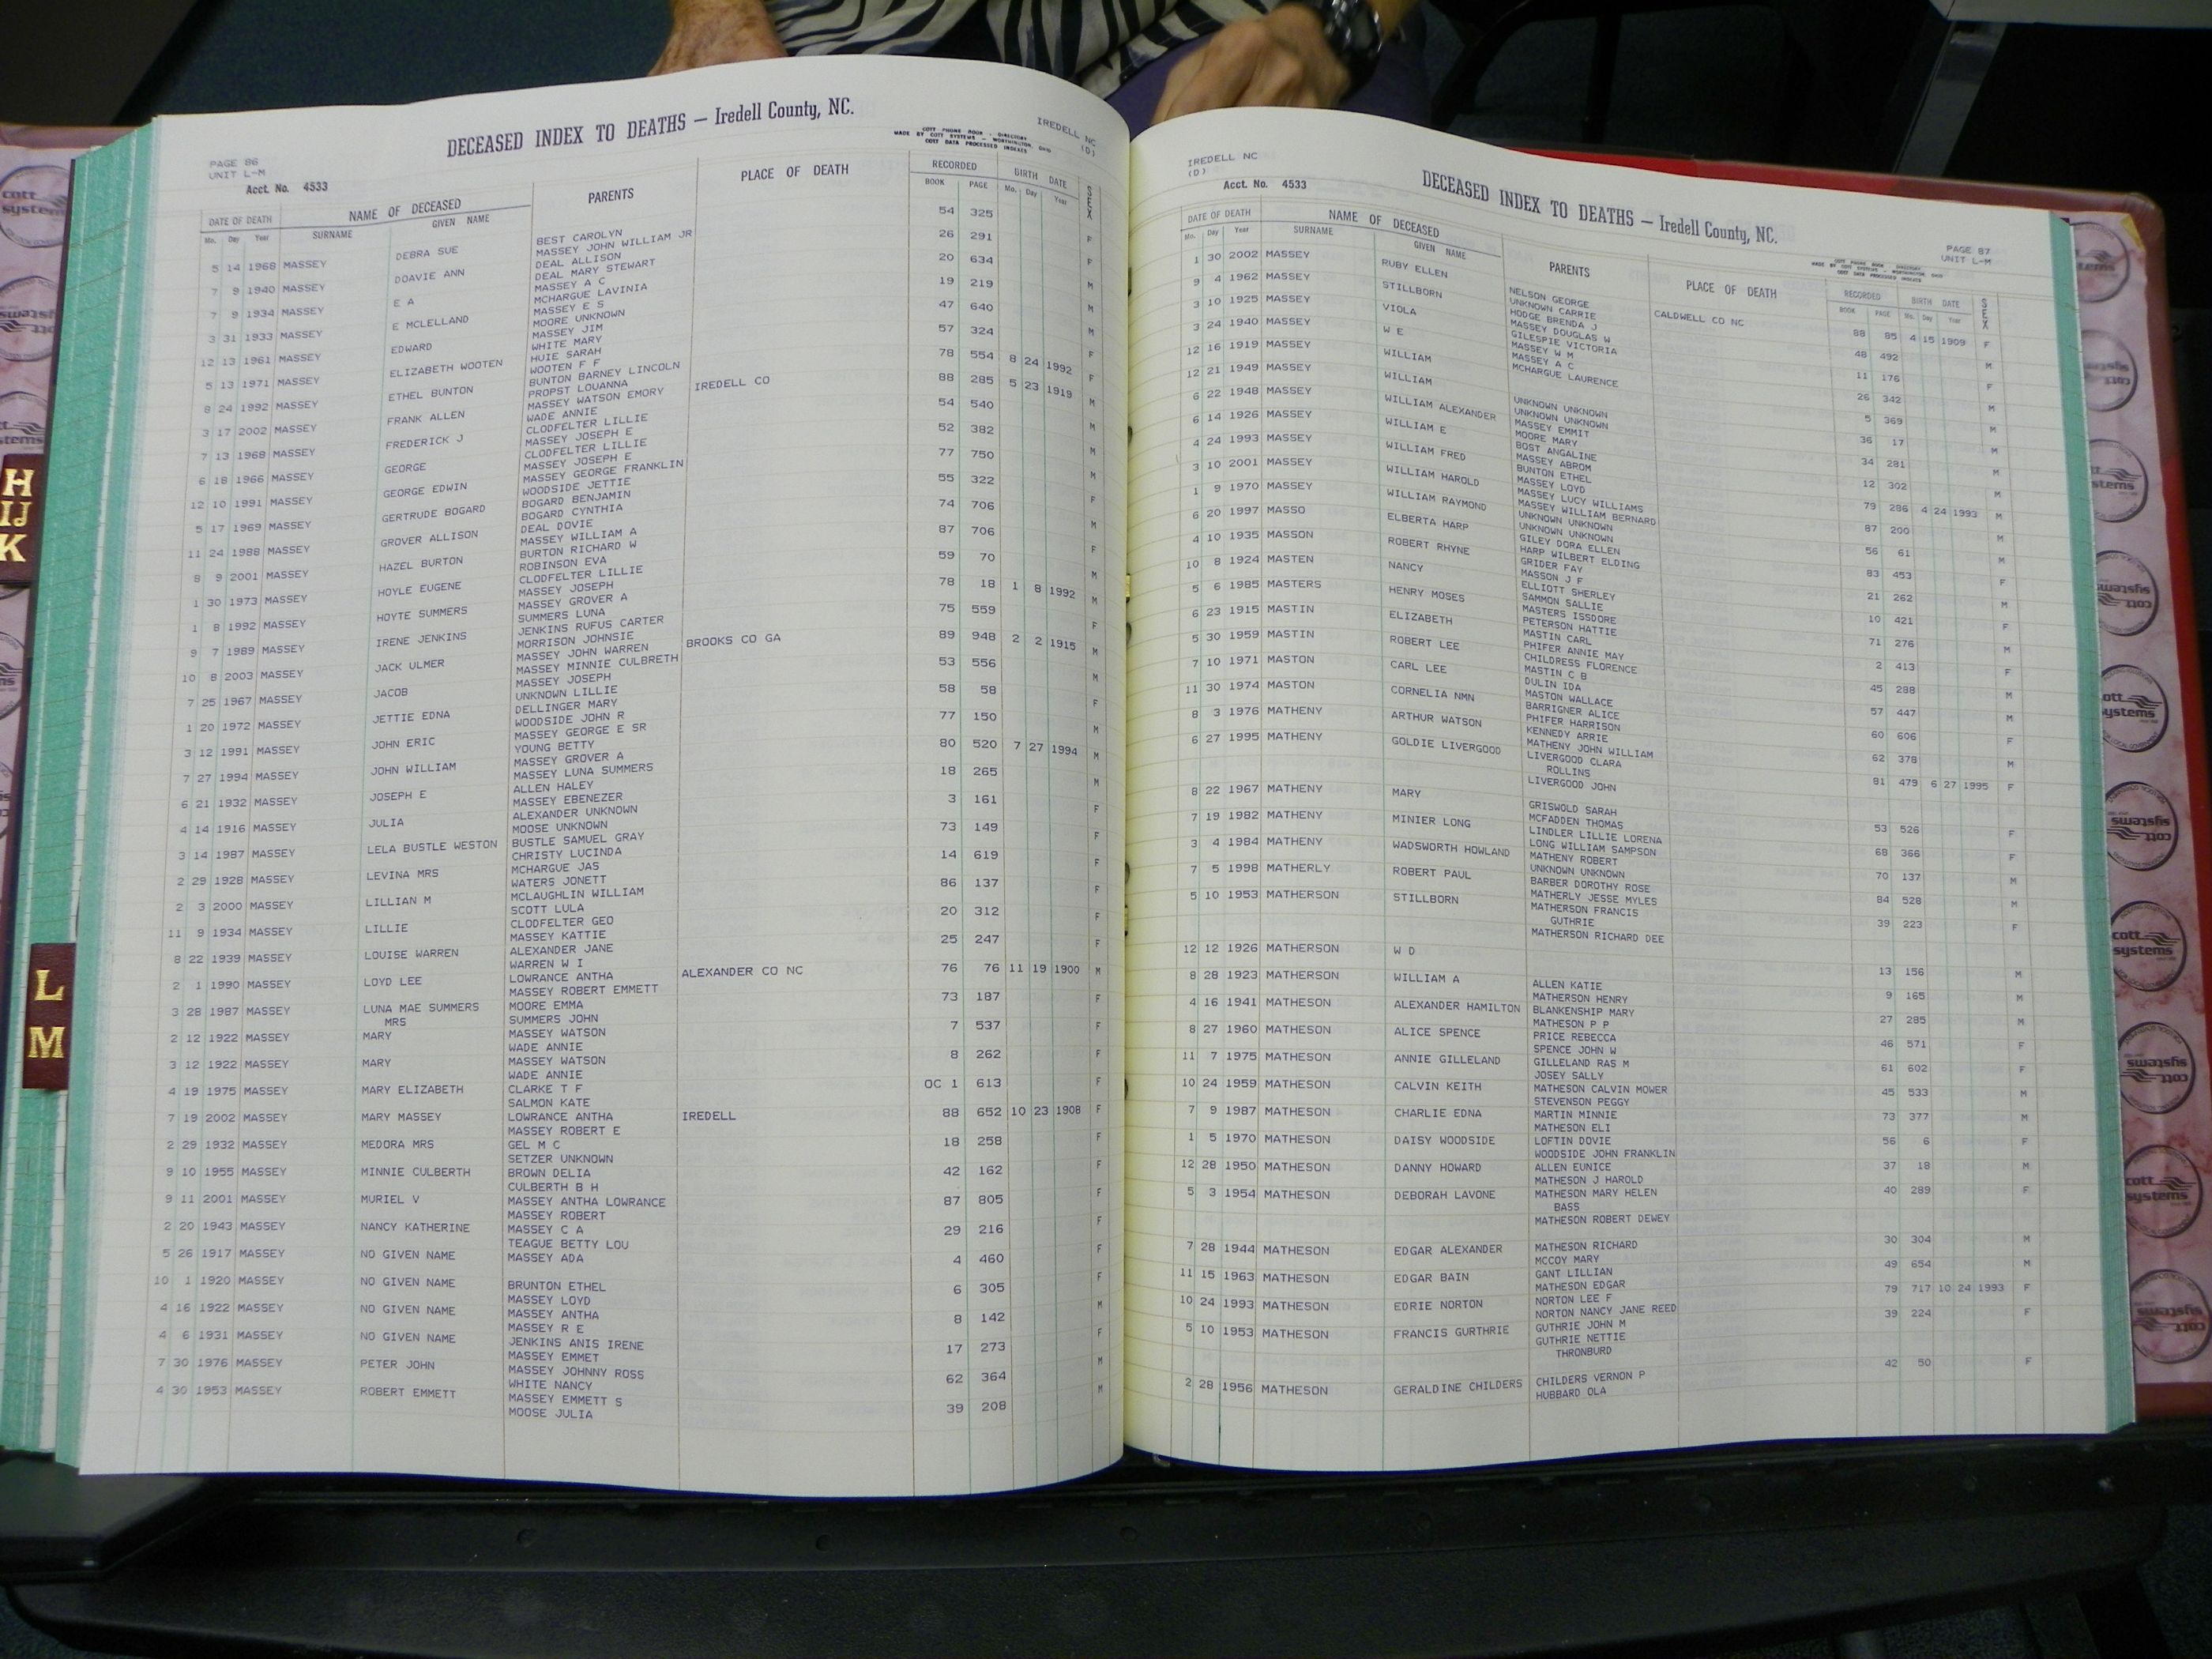 DECEASED INDEX TO DEATHS — Iredell County, NC.
IREDELL NC
(D)
COTT PHONE BOOK - DIRECTORY
MADE BY COTT SYSTEMS - WORTHINGTON, OHIO
COTT DATA PROCESSED INDEXES
PAGE 86
UNIT L-M
Acct. No. 4533
DATE OF DEATH NAME OF DECEASED PARENTS PLACE OF DEATH RECORDED BIRTH DATE SEX
Mo. Day Year SURNAME GIVEN NAME BOOK PAGE Mo. Day Year
5 14 1968 MASSEY DEBRA SUE BEST CAROLYN 54 325 F
MASSEY JOHN WILLIAM JR
7 9 1940 MASSEY DOAVIE ANN DEAL ALLISON 26 291 F
DEAL MARY STEWART
7 9 1934 MASSEY E A MASSEY A C 20 634 M
MCHARGUE LAVINIA
3 31 1933 MASSEY E MCLELLAND MASSEY E S 19 219 M
MOORE UNKNOWN
12 13 1961 MASSEY EDWARD MASSEY JIM 47 640
WHITE MARY
5 13 1971 MASSEY ELIZABETH WOOTEN HUIE SARAH 57 324 F
WOOTEN F F
8 24 1992 MASSEY ETHEL BUNTON BUNTON BARNEY LINCOLN 78 554 8 24 1992 F
PROPST LOUANNA
3 17 2002 MASSEY FRANK ALLEN MASSEY WATSON EMORY IREDELL CO 88 285 5 23 1919 M
WADE ANNIE
7 13 1968 MASSEY FREDERICK J CLODFELTER LILLIE 54 540 M
MASSEY JOSEPH E
6 18 1966 MASSEY GEORGE CLODFELTER LILLIE 52 382 M
MASSEY JOSEPH E
12 10 1991 MASSEY GEORGE EDWIN MASSEY GEORGE FRANKLIN 77 750 M
WOODSIDE JETTIE
5 17 1969 MASSEY GERTRUDE BOGARD BOGARD BENJAMIN 55 322 F
BOGARD CYNTHIA
11 24 1988 MASSEY GROVER ALLISON DEAL DOVIE 74 706 M
MASSEY WILLIAM A
8 9 2001 MASSEY HAZEL BURTON BURTON RICHARD W 87 706 F
ROBINSON EVA
1 30 1973 MASSEY HOYLE EUGENE CLODFELTER LILLIE 59 70 M
MASSEY JOSEPH
1 8 1992 MASSEY HOYTE SUMMERS MASSEY GROVER A 78 18 1 8 1992 M
SUMMERS LUNA
9 7 1989 MASSEY IRENE JENKINS JENKINS RUFUS CARTER 75 559 F
MORRISON JOHNSIE
10 8 2003 MASSEY JACK ULMER MASSEY JOHN WARREN BROOKS CO GA 89 948 2 2 1915 M
MASSEY MINNIE CULBRETH
7 25 1967 MASSEY JACOB MASSEY JOSEPH 53 556 M
UNKNOWN LILLIE
1 20 1972 MASSEY JETTIE EDNA DELLINGER MARY 58 58 F
WOODSIDE JOHN R
3 12 1991 MASSEY JOHN ERIC MASSEY GEORGE E SR 77 150 M
YOUNG BETTY
7 27 1994 MASSEY JOHN WILLIAM MASSEY GROVER A 80 520 7 27 1994 M
MASSEY LUNA SUMMERS
6 21 1932 MASSEY JOSEPH E ALLEN HALEY 18 265 M
MASSEY EBENEZER
4 14 1916 MASSEY JULIA ALEXANDER UNKNOWN 3 161 F
MOOSE UNKNOWN
3 14 1987 MASSEY LELA BUSTLE WESTON BUSTLE SAMUEL GRAY 73 149 F
CHRISTY LUCINDA
2 29 1928 MASSEY LEVINA MRS MCHARGUE JAS 14 619 F
WATERS JONETT
2 3 2000 MASSEY LILLIAN M MCLAUGHLIN WILLIAM 86 137 F
SCOTT LULA
11 9 1934 MASSEY LILLIE CLODFELTER GEO 20 312 F
MASSEY KATTIE
8 22 1939 MASSEY LOUISE WARREN ALEXANDER JANE 25 247 F
WARREN W I
2 1 1990 MASSEY LOYD LEE LOWRANCE ANTHA ALEXANDER CO NC 76 76 11 19 1900 M
MASSEY ROBERT EMMETT
3 28 1987 MASSEY LUNA MAE SUMMERS MOORE EMMA 73 187 F
MRS SUMMERS JOHN
2 12 1922 MASSEY MARY MASSEY WATSON 7 537 F
WADE ANNIE
3 12 1922 MASSEY MARY MASSEY WATSON 8 262 F
WADE ANNIE
4 19 1975 MASSEY MARY ELIZABETH CLARKE T F OC 1 613 F
SALMON KATE
7 19 2002 MASSEY MARY MASSEY LOWRANCE ANTHA IREDELL 88 652 10 23 1908 F
MASSEY ROBERT E
2 29 1932 MASSEY MEDORA MRS GEL M C 18 258 F
SETZER UNKNOWN
9 10 1955 MASSEY MINNIE CULBERTH BROWN DELIA 42 162 F
CULBERTH B H
9 11 2001 MASSEY MURIEL V MASSEY ANTHA LOWRANCE 87 805 F
MASSEY ROBERT
2 20 1943 MASSEY NANCY KATHERINE MASSEY C A 29 216 F
TEAGUE BETTY LOU
5 26 1917 MASSEY NO GIVEN NAME MASSEY ADA 4 460 F
10 1 1920 MASSEY NO GIVEN NAME BRUNTON ETHEL 6 305 F
MASSEY LOYD
4 16 1922 MASSEY NO GIVEN NAME MASSEY ANTHA 8 142 M
MASSEY R E
4 6 1931 MASSEY NO GIVEN NAME JENKINS ANIS IRENE 17 273 F
MASSEY EMMET
7 30 1976 MASSEY PETER JOHN MASSEY JOHNNY ROSS 62 364 M
WHITE NANCY
4 30 1953 MASSEY ROBERT EMMETT MASSEY EMMETT S 39 208 M
MOOSE JULIA
IREDELL NC
(D)
Acct. No. 4533
DECEASED INDEX TO DEATHS — Iredell County, NC.
PAGE 87
UNIT L-M
COTT PHONE BOOK DIRECTORY
MADE BY COTT SYSTEMS - WORTHINGTON OHIO
COTT DATA PROCESSED INDEXES
DATE OF DEATH NAME OF DECEASED PARENTS PLACE OF DEATH RECORDED BIRTH DATE SEX
Mo. Day Year SURNAME GIVEN NAME BOOK PAGE Mo. Day Year
1 30 2002 MASSEY RUBY ELLEN NELSON GEORGE CALDWELL CO NC 88 85 4 15 1909 F
UNKNOWN CARRIE
9 4 1962 MASSEY STILLBORN HODGE BRENDA J 48 492 M
MASSEY DOUGLAS W
3 10 1925 MASSEY VIOLA GILESPIE VICTORIA 11 176 F
MASSEY W M
3 24 1940 MASSEY W E MASSEY A C 26 342 M
MCHARGUE LAURENCE
12 16 1919 MASSEY WILLIAM 5 369 M
12 21 1949 MASSEY WILLIAM UNKNOWN UNKNOWN 36 17 M
UNKNOWN UNKNOWN
6 22 1948 MASSEY WILLIAM ALEXANDER MASSEY EMMIT 34 281 M
MOORE MARY
6 14 1926 MASSEY WILLIAM E BOST ANGALINE 12 302 M
MASSEY ABROM
4 24 1993 MASSEY WILLIAM FRED BUNTON ETHEL 79 286 4 24 1993 M
MASSEY LOYD
3 10 2001 MASSEY WILLIAM HAROLD MASSEY LUCY WILLIAMS 87 200 M
MASSEY WILLIAM BERNARD
1 9 1970 MASSEY WILLIAM RAYMOND UNKNOWN UNKNOWN 56 61 M
UNKNOWN UNKNOWN
6 20 1997 MASSO ELBERTA HARP GILEY DORA ELLEN 83 453 F
HARP WILBERT ELDING
4 10 1935 MASSON ROBERT RHYNE GRIDER FAY 21 262 M
MASSON J F
10 8 1924 MASTEN NANCY ELLIOTT SHERLEY 10 421 F
SAMMON SALLIE
5 6 1985 MASTERS HENRY MOSES MASTERS ISSDORE 71 276 M
PETERSON HATTIE
6 23 1915 MASTIN ELIZABETH MASTIN CARL 2 413 F
PHIFER ANNIE MAY
5 30 1959 MASTIN ROBERT LEE CHILDRESS FLORENCE 45 288 M
MASTIN C B
7 10 1971 MASTON CARL LEE DULIN IDA 57 447 M
MASTON WALLACE
11 30 1974 MASTON CORNELIA NMN BARRIGNER ALICE 60 606 F
PHIFER HARRISON
8 3 1976 MATHENY ARTHUR WATSON KENNEDY ARRIE 62 378 M
MATHENY JOHN WILLIAM
6 27 1995 MATHENY GOLDIE LIVERGOOD LIVERGOOD CLARA 81 479 6 27 1995 F
ROLLINS
LIVERGOOD JOHN
8 22 1967 MATHENY MARY GRISWOLD SARAH 53 526 F
MCFADDEN THOMAS
7 19 1982 MATHENY MINIER LONG LINDLER LILLIE LORENA 68 366 F
LONG WILLIAM SAMPSON
3 4 1984 MATHENY WADSWORTH HOWLAND MATHENY ROBERT 70 137 M
UNKNOWN UNKNOWN
7 5 1998 MATHERLY ROBERT PAUL BARBER DOROTHY ROSE 84 528 M
MATHERLY JESSE MYLES
5 10 1953 MATHERSON STILLBORN MATHERSON FRANCIS 39 223 F
GUTHRIE
MATHERSON RICHARD DEE
12 12 1926 MATHERSON W D 13 156 M
8 28 1923 MATHERSON WILLIAM A ALLEN KATIE 9 165 M
MATHERSON HENRY
4 16 1941 MATHESON ALEXANDER HAMILTON BLANKENSHIP MARY 27 285 M
MATHESON P P
8 27 1960 MATHESON ALICE SPENCE PRICE REBECCA 46 571 F
SPENCE JOHN W
11 7 1975 MATHESON ANNIE GILLELAND GILLELAND RAS M 61 602 F
JOSEY SALLY
10 24 1959 MATHESON CALVIN KEITH MATHESON CALVIN MOWER 45 533 M
STEVENSON PEGGY
7 9 1987 MATHESON CHARLIE EDNA MARTIN MINNIE 73 377 M
MATHESON ELI
1 5 1970 MATHESON DAISY WOODSIDE LOFTIN DOVIE 56 6 F
WOODSIDE JOHN FRANKLIN
12 28 1950 MATHESON DANNY HOWARD ALLEN EUNICE 37 18 M
MATHESON J HAROLD
5 3 1954 MATHESON DEBORAH LAVONE MATHESON MARY HELEN 40 289 F
BASS
MATHESON ROBERT DEWEY
7 28 1944 MATHESON EDGAR ALEXANDER MATHESON RICHARD 30 304 M
MCCOY MARY
11 15 1963 MATHESON EDGAR BAIN GANT LILLIAN 49 654 M
MATHESON EDGAR
10 24 1993 MATHESON EDRIE NORTON NORTON LEE F 79 717 10 24 1993 F
NORTON NANCY JANE REED
5 10 1953 MATHESON FRANCIS GURTHRIE GUTHRIE JOHN M 39 224 F
GUTHRIE NETTIE
THRONBURD
2 28 1956 MATHESON GERALDINE CHILDERS CHILDERS VERNON P 42 50 F
HUBBARD OLA
H
IJ
K
L
M
cott
systems